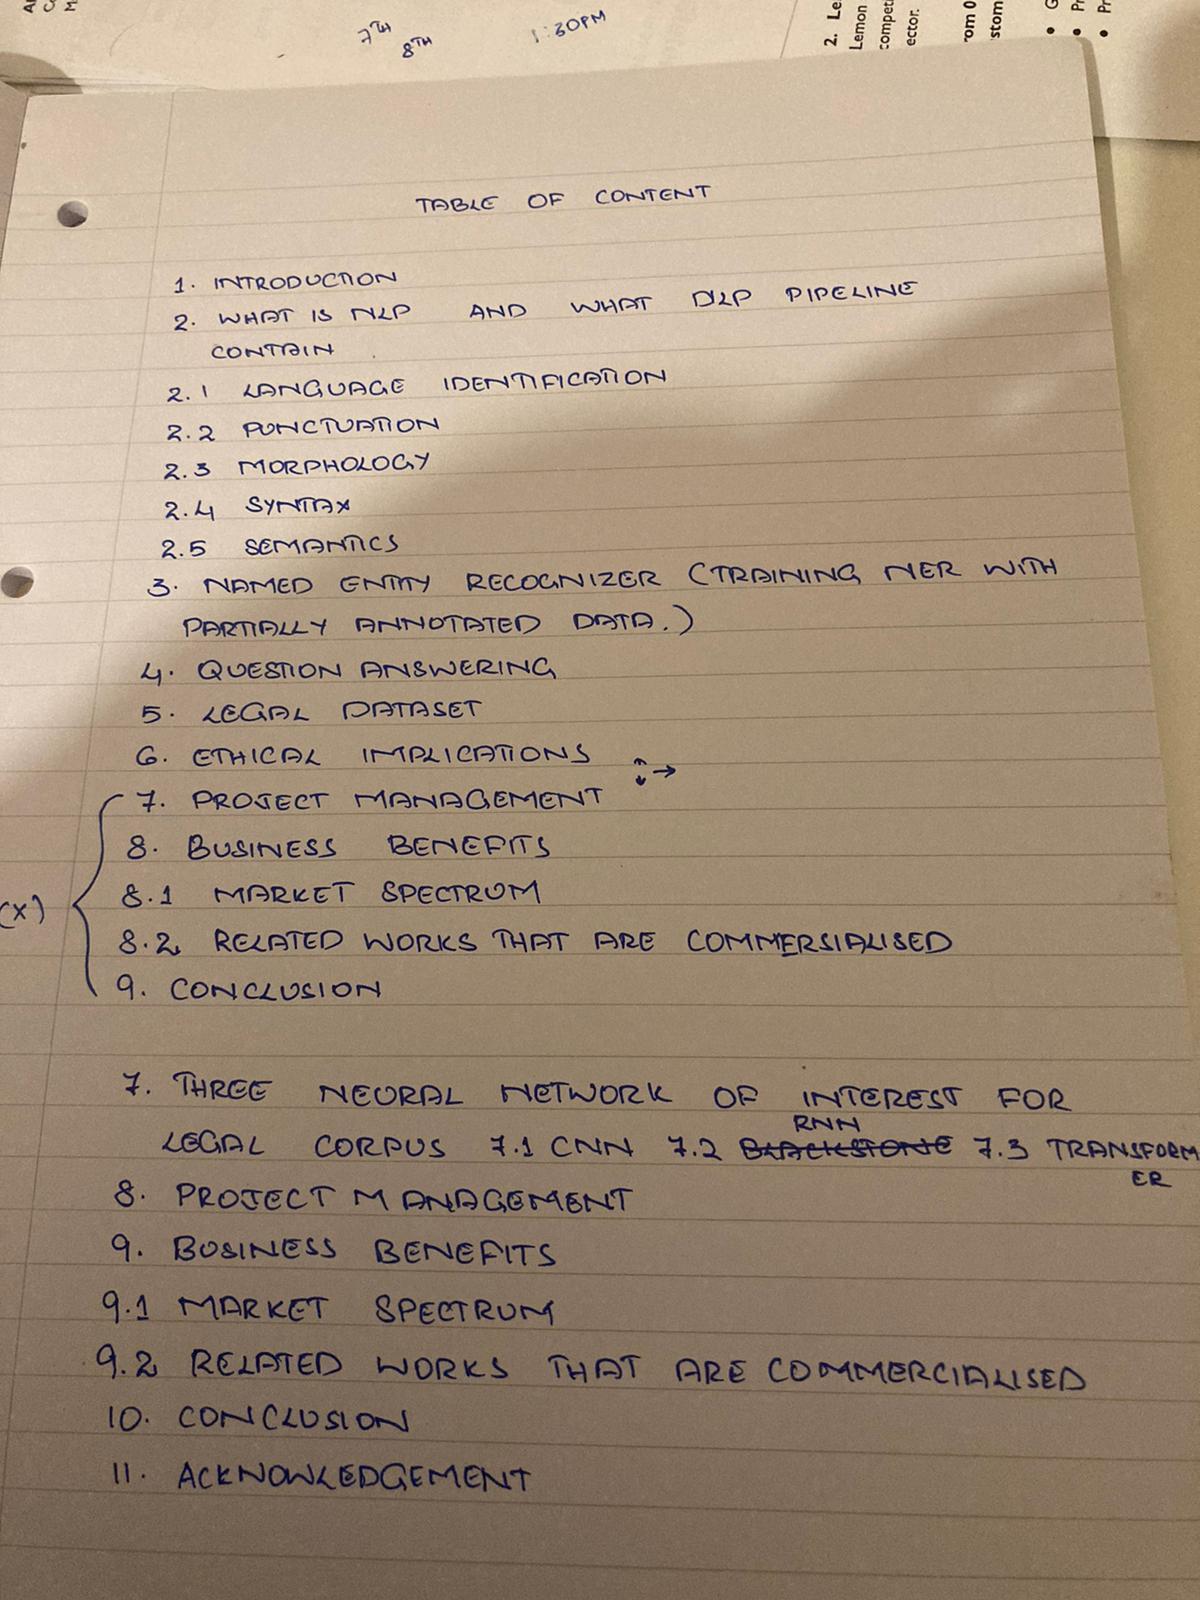 7TH
8TH
1:30PM
2. Le
Lemon
compet
ector.
rom 0
stom
TABLE OF CONTENT
1. INTRODUCTION
2. WHAT IS NLP AND WHAT NLP PIPELINE
CONTAIN
2.1 LANGUAGE IDENTIFICATION
2.2 PUNCTUATION
2.3 MORPHOLOGY
2.4 SYNTAX
2.5 SEMANTICS
3. NAMED ENTITY RECOGNIZER (TRAINING NER WITH
PARTIALLY ANNOTATED DATA.)
4. QUESTION ANSWERING
5. LEGAL DATASET
6. ETHICAL IMPLICATIONS
7. PROJECT MANAGEMENT
8. BUSINESS BENEFITS
8.1 MARKET SPECTRUM
(X)
8.2 RELATED WORKS THAT ARE COMMERSIALISED
9. CONCLUSION
7. THREE NEURAL NETWORK OF INTEREST FOR
RNN
LEGAL CORPUS 7.1 CNN 7.2 BLACKSTONE 7.3 TRANSFORM
ER
8. PROJECT MANAGEMENT
9. BUSINESS BENEFITS
9.1 MARKET SPECTRUM
9.2 RELATED WORKS THAT ARE COMMERCIALISED
10. CONCLUSION
11. ACKNOWLEDGEMENT